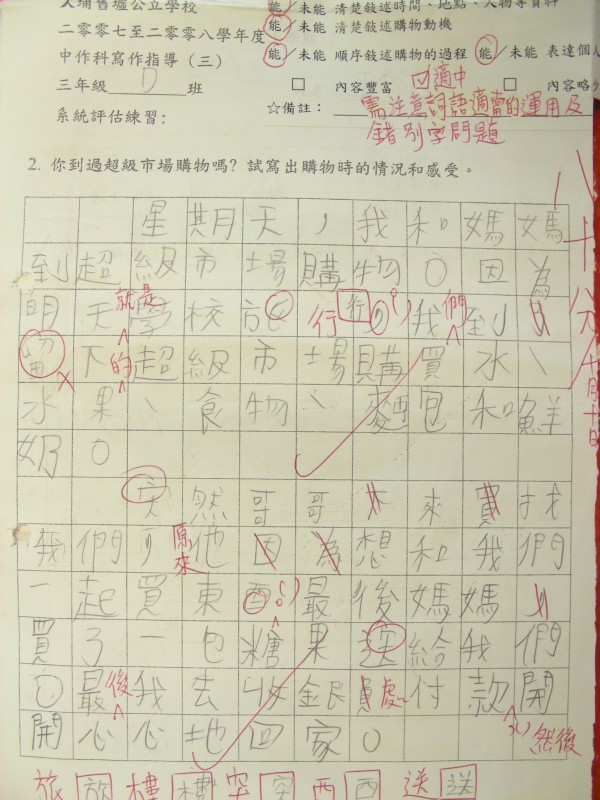 大埔舊墟公立學校
二零零七至二零零八學年度
中作科寫作指導（三）
三年級 D 班
系統評估練習：
能/未能 清楚敍述時間、地點、人物等資料
能/未能 清楚敍述購物動機
能/未能 順序敍述購物的過程 能/未能 表達個人
□ 內容豐富 ☑適中 □ 內容略
☆備註：需注意詞語適當的運用及
錯別字問題
2. 你到過超級市場購物嗎？試寫出購物時的情況和感受。
八十分
十月十日
星期天，我和媽媽
到超級市場購物。因為
明天就是學校旅行，我們到
樓下的超級市場購買水、
水果、食物、麪包和鮮
奶。
突然哥哥來找
我們，原來他因為想和我們
一起買東西。最後媽媽
買了一包糖果送給我們
。最後我去收銀處付款，然後開
開心心地回家。
旅 放 樓 樓 突 突 西 西 送 送